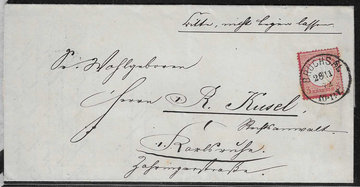 Bitte, nicht liegen lassen.
Sr. Wohlgeboren
Herrn R. Kusel,
Rechtsanwalt
Karlsruhe.
Zähringerstraße.
BRUCHSAL
28 11